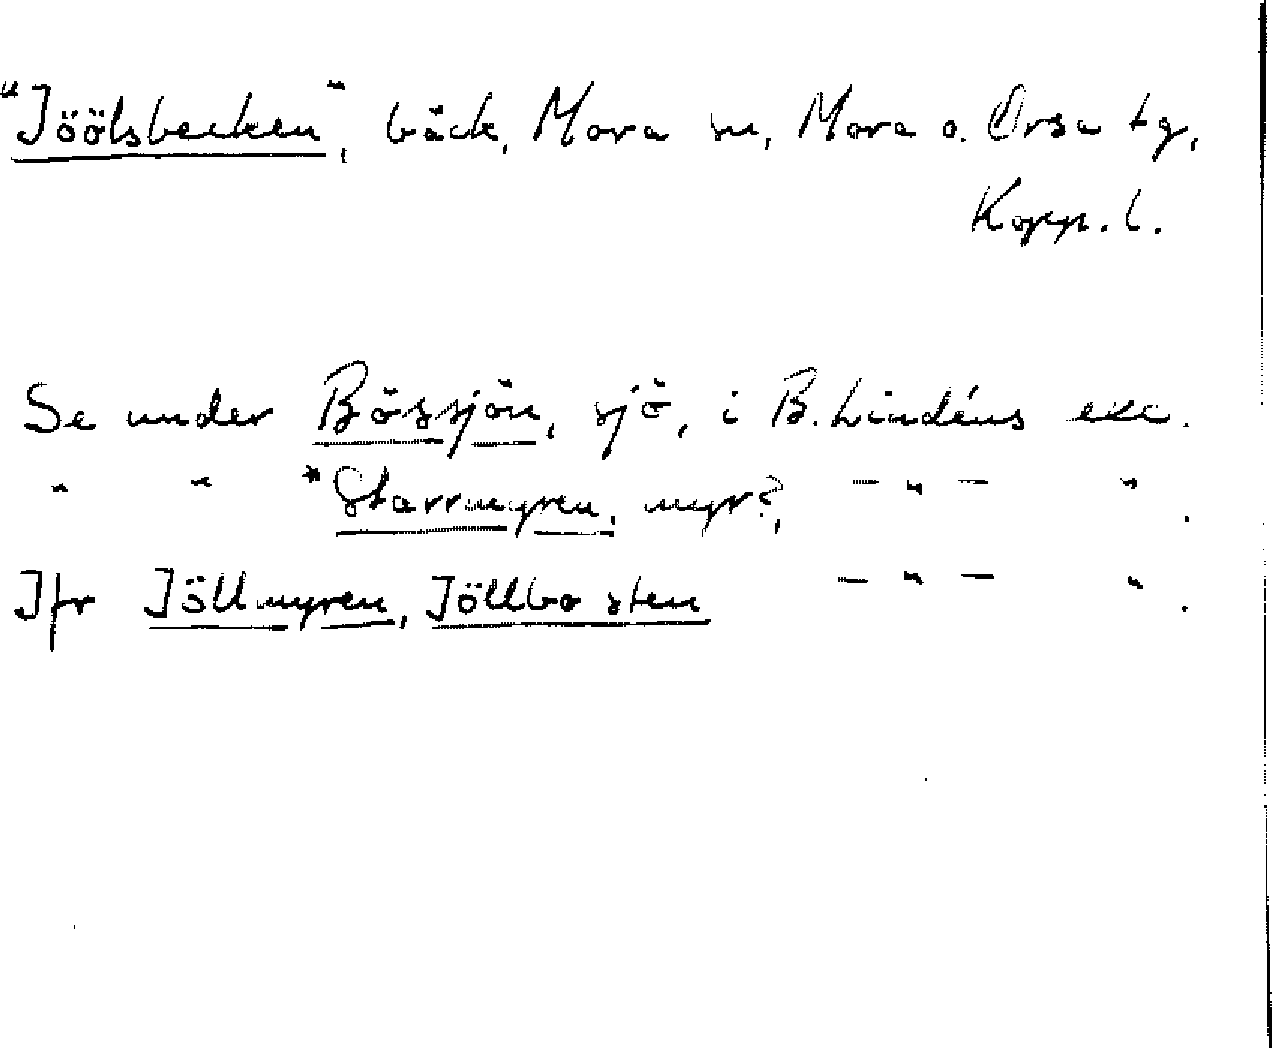 "Jöölsbecken", bäck, Mora sn, Mora o. Orsa tg,
Kopp. l.
Se under Bössjön, sjö, i B. Lindéns exc.
" " *Starrmyren, myr?, – " – " .
Jfr Jöllmyren, Jöllbosten – " – " .